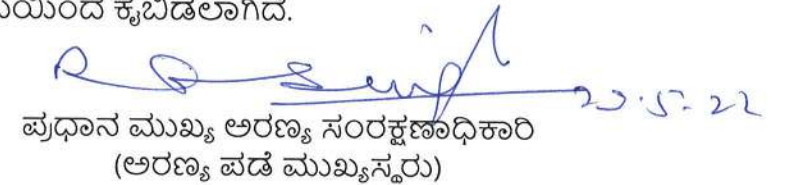 ಕೈಬಿಡಲಾಗಿದೆ.
ಪ್ರಧಾನ ಮುಖ್ಯ ಅರಣ್ಯ ಸಂರಕ್ಷಣಾಧಿಕಾರಿ
(ಅರಣ್ಯ ಪಡೆ ಮುಖ್ಯಸ್ಥರು)